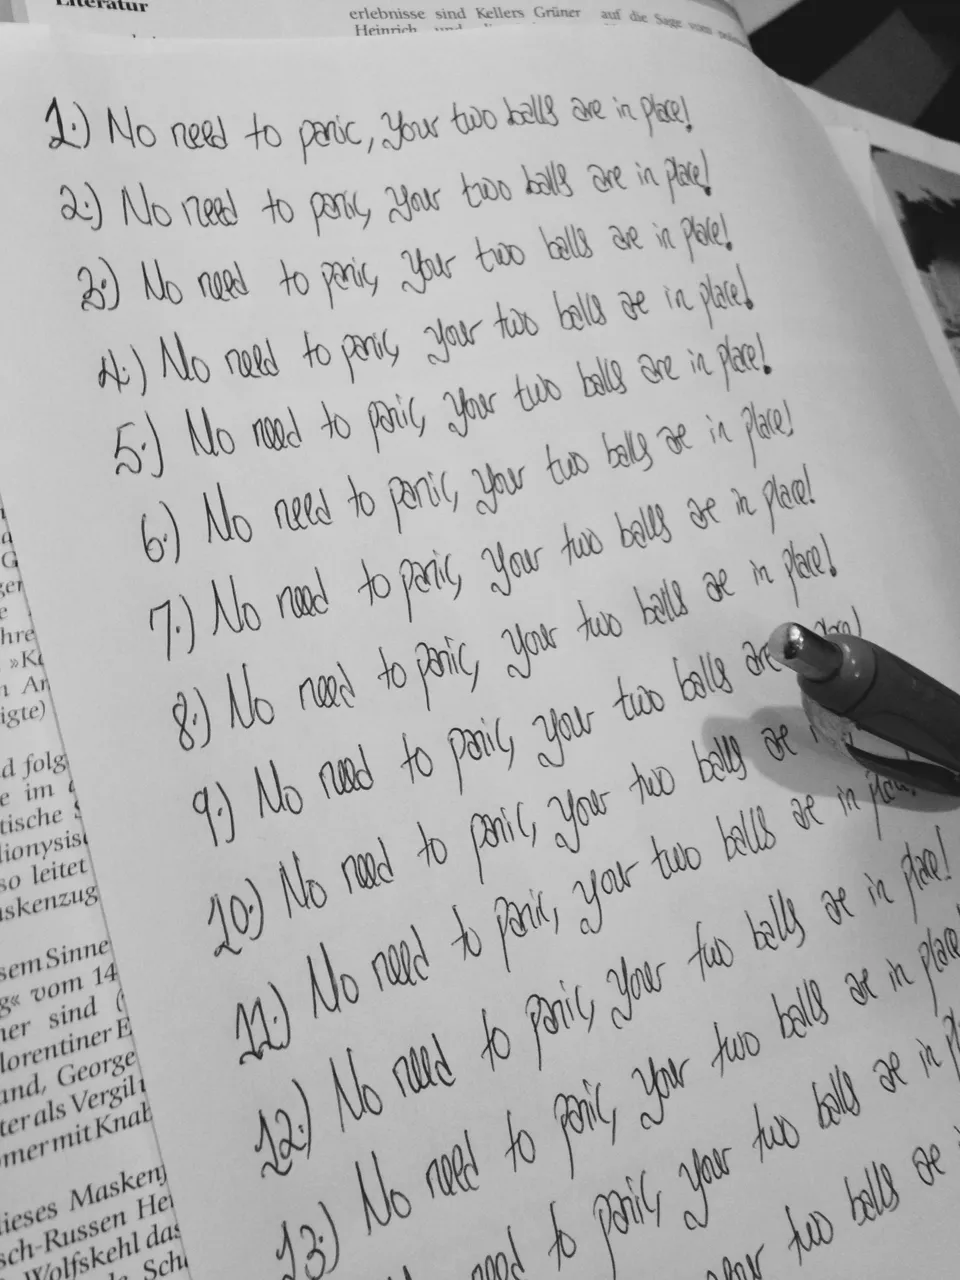 Literatur
erlebnisse sind Kellers Grüner
Heinrich und
auf die Sage vom
1.) No need to panic, your two balls are in place!
2.) No need to panic, your two balls are in place!
3.) No need to panic, your two balls are in place!
4.) No need to panic, your two balls are in place!
5.) No need to panic, your two balls are in place!
6.) No need to panic, your two balls are in place!
7.) No need to panic, your two balls are in place!
8.) No need to panic, your two balls are in place!
9.) No need to panic, your two balls are
10.) No need to panic, your two balls are
11.) No need to panic, your two balls are in place!
12.) No need to panic, your two balls are in place!
13.) No need to panic, your two balls are in place
need to panic, your two balls are in
your two balls are
hre
»Ke
n Ar
igte)
d folg
e im
tische
lionysis
so leitet
skenzug
sem Sinne
g« vom 14
ner sind (
lorentiner E
and, George
ter als Vergil
mer mit Knab
dieses Masken
sch-Russen He
Wolfskehl das
Sch